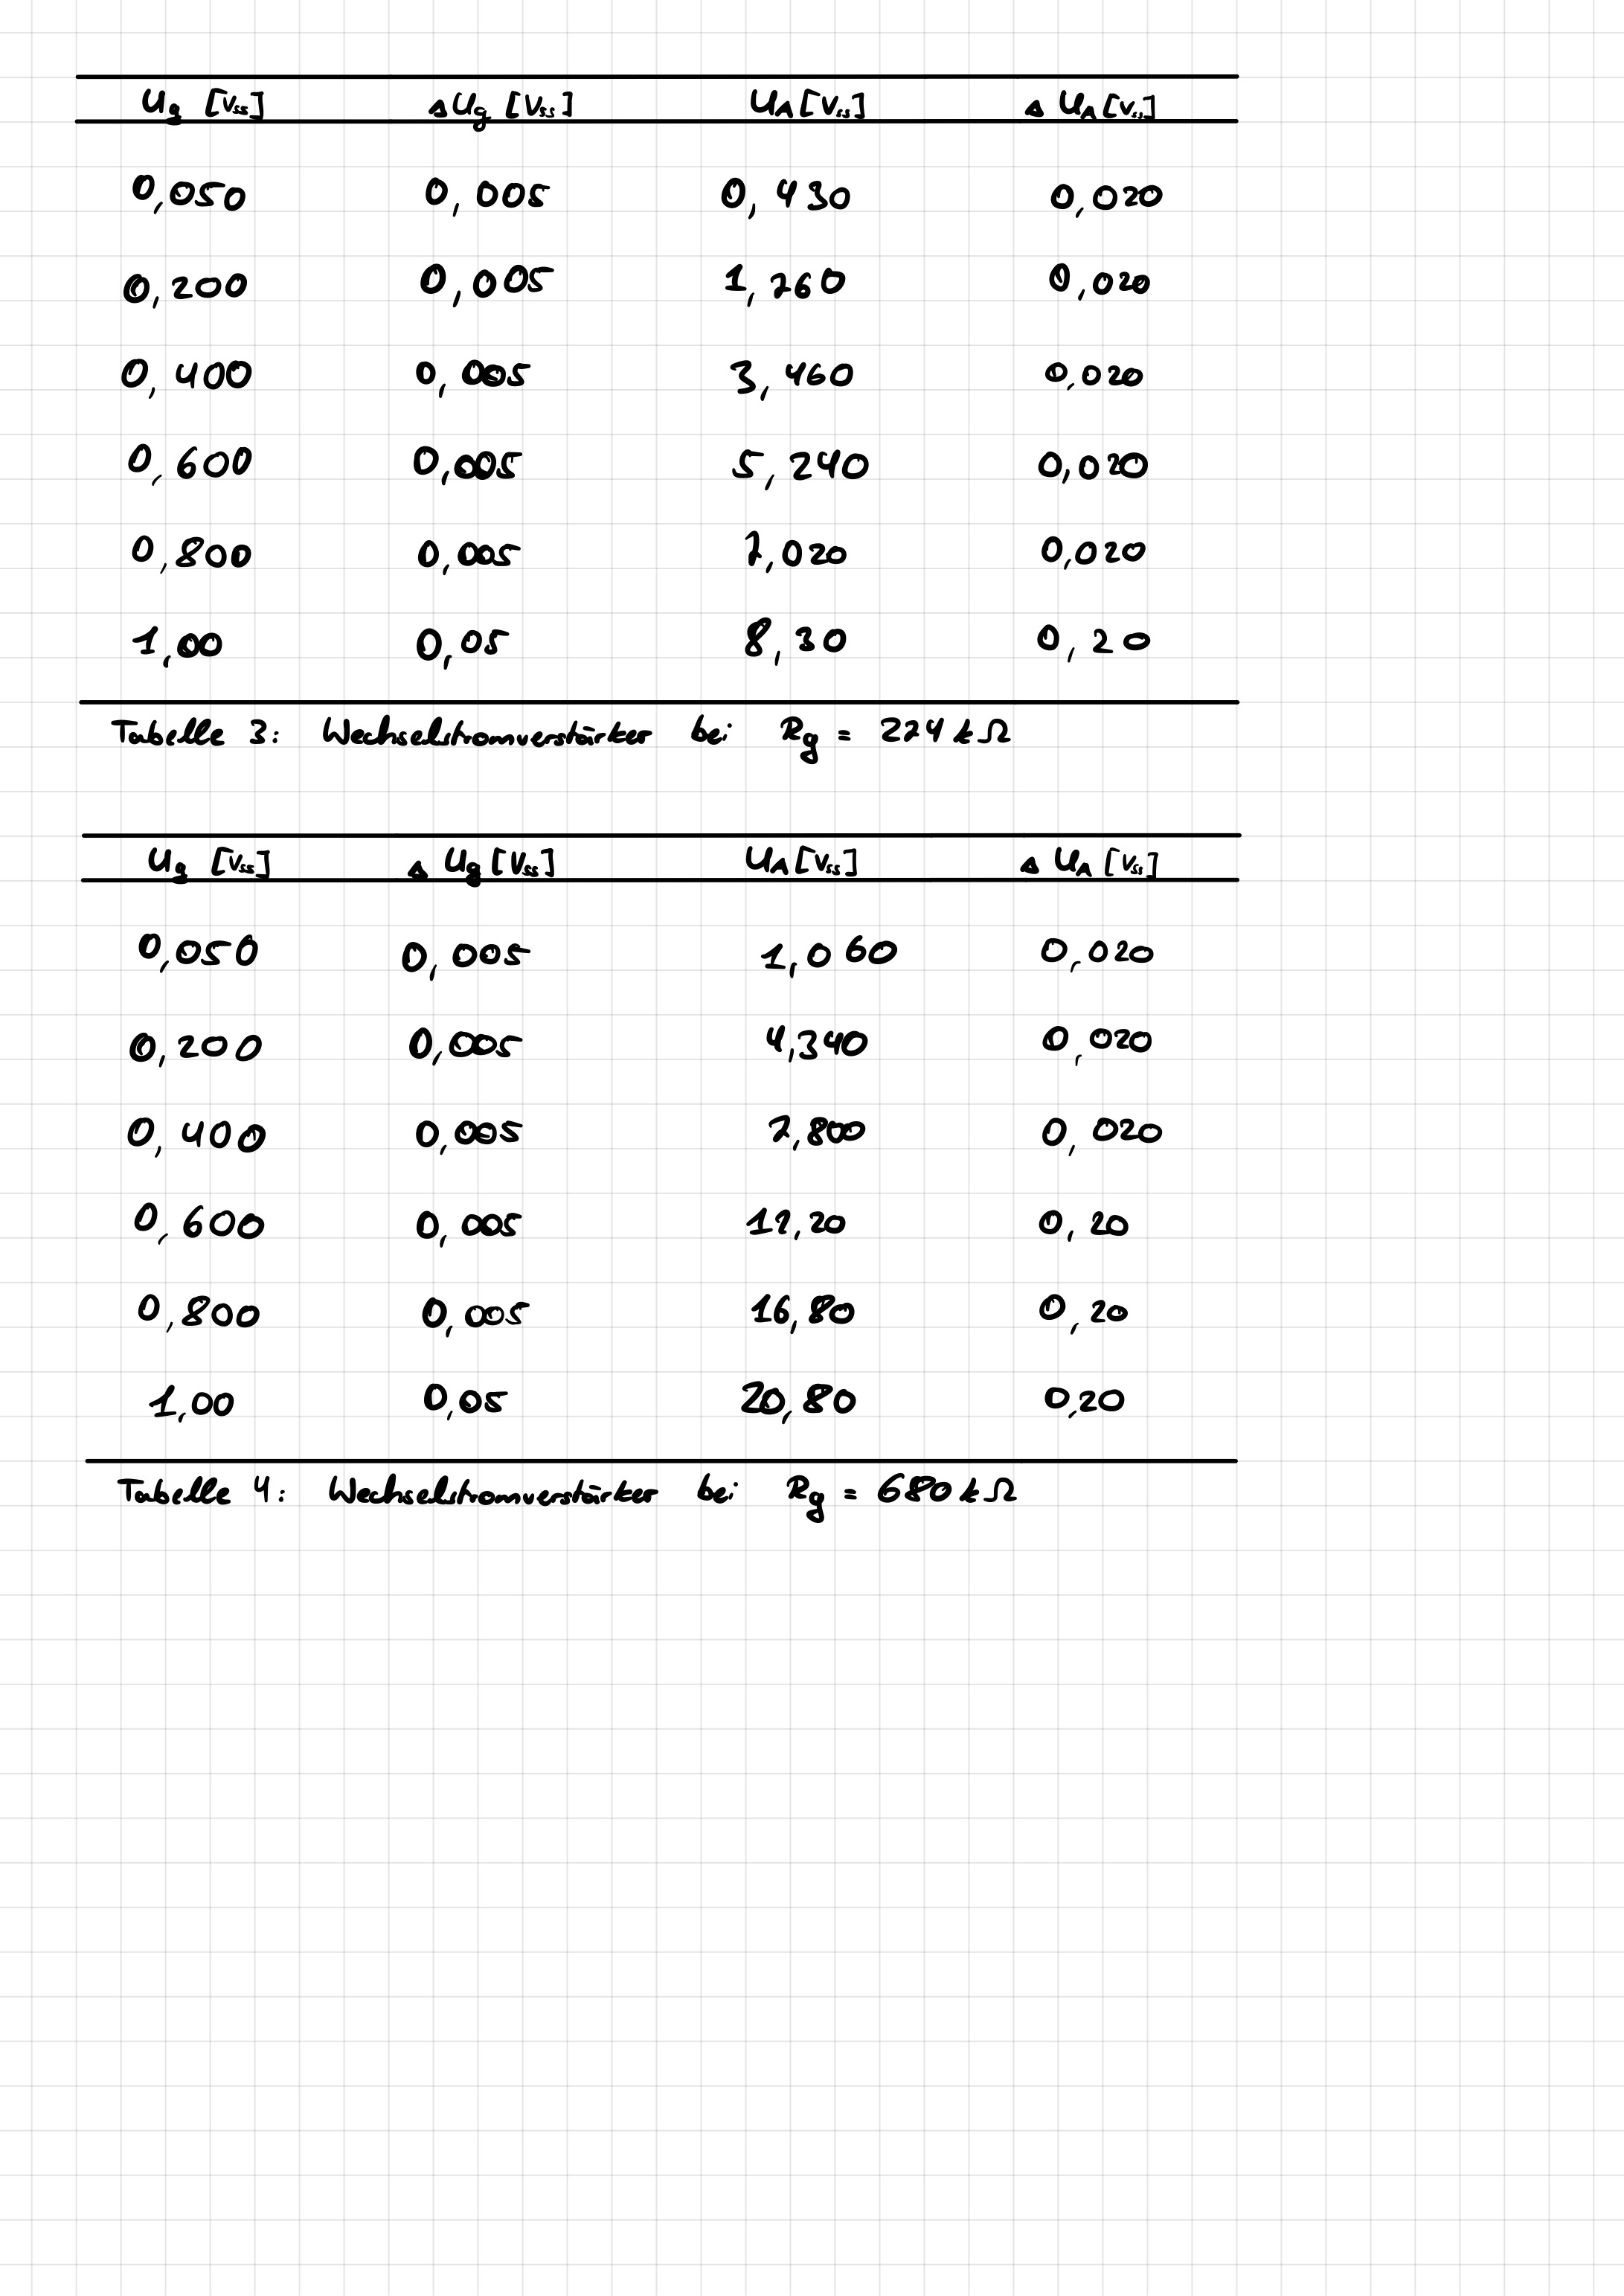 Ug [Vss] ΔUg [Vss] UA [Vss] Δ UA [Vss]
0,050 0,005 0,430 0,020
0,200 0,005 1,760 0,020
0,400 0,005 3,460 0,020
0,600 0,005 5,240 0,020
0,800 0,005 7,020 0,020
1,00 0,05 8,30 0,20
Tabelle 3: Wechselstromverstärker bei Rg = 274 kΩ
Ug [Vss] Δ Ug [Vss] UA [Vss] Δ UA [Vss]
0,050 0,005 1,060 0,020
0,200 0,005 4,340 0,020
0,400 0,005 7,800 0,020
0,600 0,005 12,20 0,20
0,800 0,005 16,80 0,20
1,00 0,05 20,80 0,20
Tabelle 4: Wechselstromverstärker bei Rg = 680 kΩ